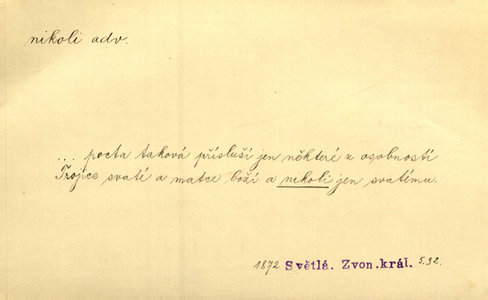 nikoli adv.
... pocta taková přísluší jen některé z osobností
Trojice svaté a matce boží a nikoli jen svatému.
1872 Světlá. Zvon.král. 5.32.